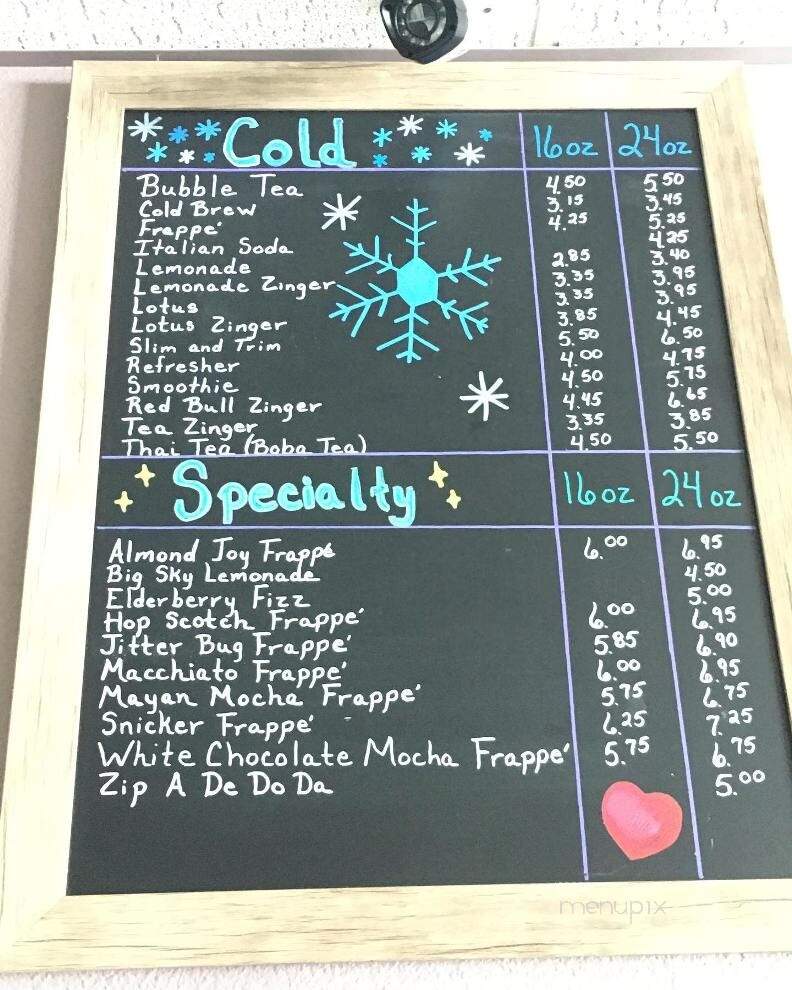 Cold 16oz 24oz
Bubble Tea 4.50 5.50
Cold Brew 3.15 3.45
Frappe' 4.25 5.25
Italian Soda 4.25
Lemonade 2.85 3.40
Lemonade Zinger 3.35 3.95
Lotus 3.35 3.95
Lotus Zinger 3.85 4.45
Slim and Trim 5.50 6.50
Refresher 4.00 4.75
Smoothie 4.50 5.75
Red Bull Zinger 4.45 6.65
Tea Zinger 3.35 3.85
Thai Tea (Boba Tea) 4.50 5.50
Specialty 16oz 24oz
Almond Joy Frappé 6.00 6.95
Big Sky Lemonade 4.50
Elderberry Fizz 5.00
Hop Scotch Frappe' 6.00 6.95
Jitter Bug Frappe' 5.85 6.90
Macchiato Frappe' 6.00 6.95
Mayan Mocha Frappe' 5.75 6.75
Snicker Frappe' 6.25 7.25
White Chocolate Mocha Frappe' 5.75 6.75
Zip A De Do Da 5.00
menupix